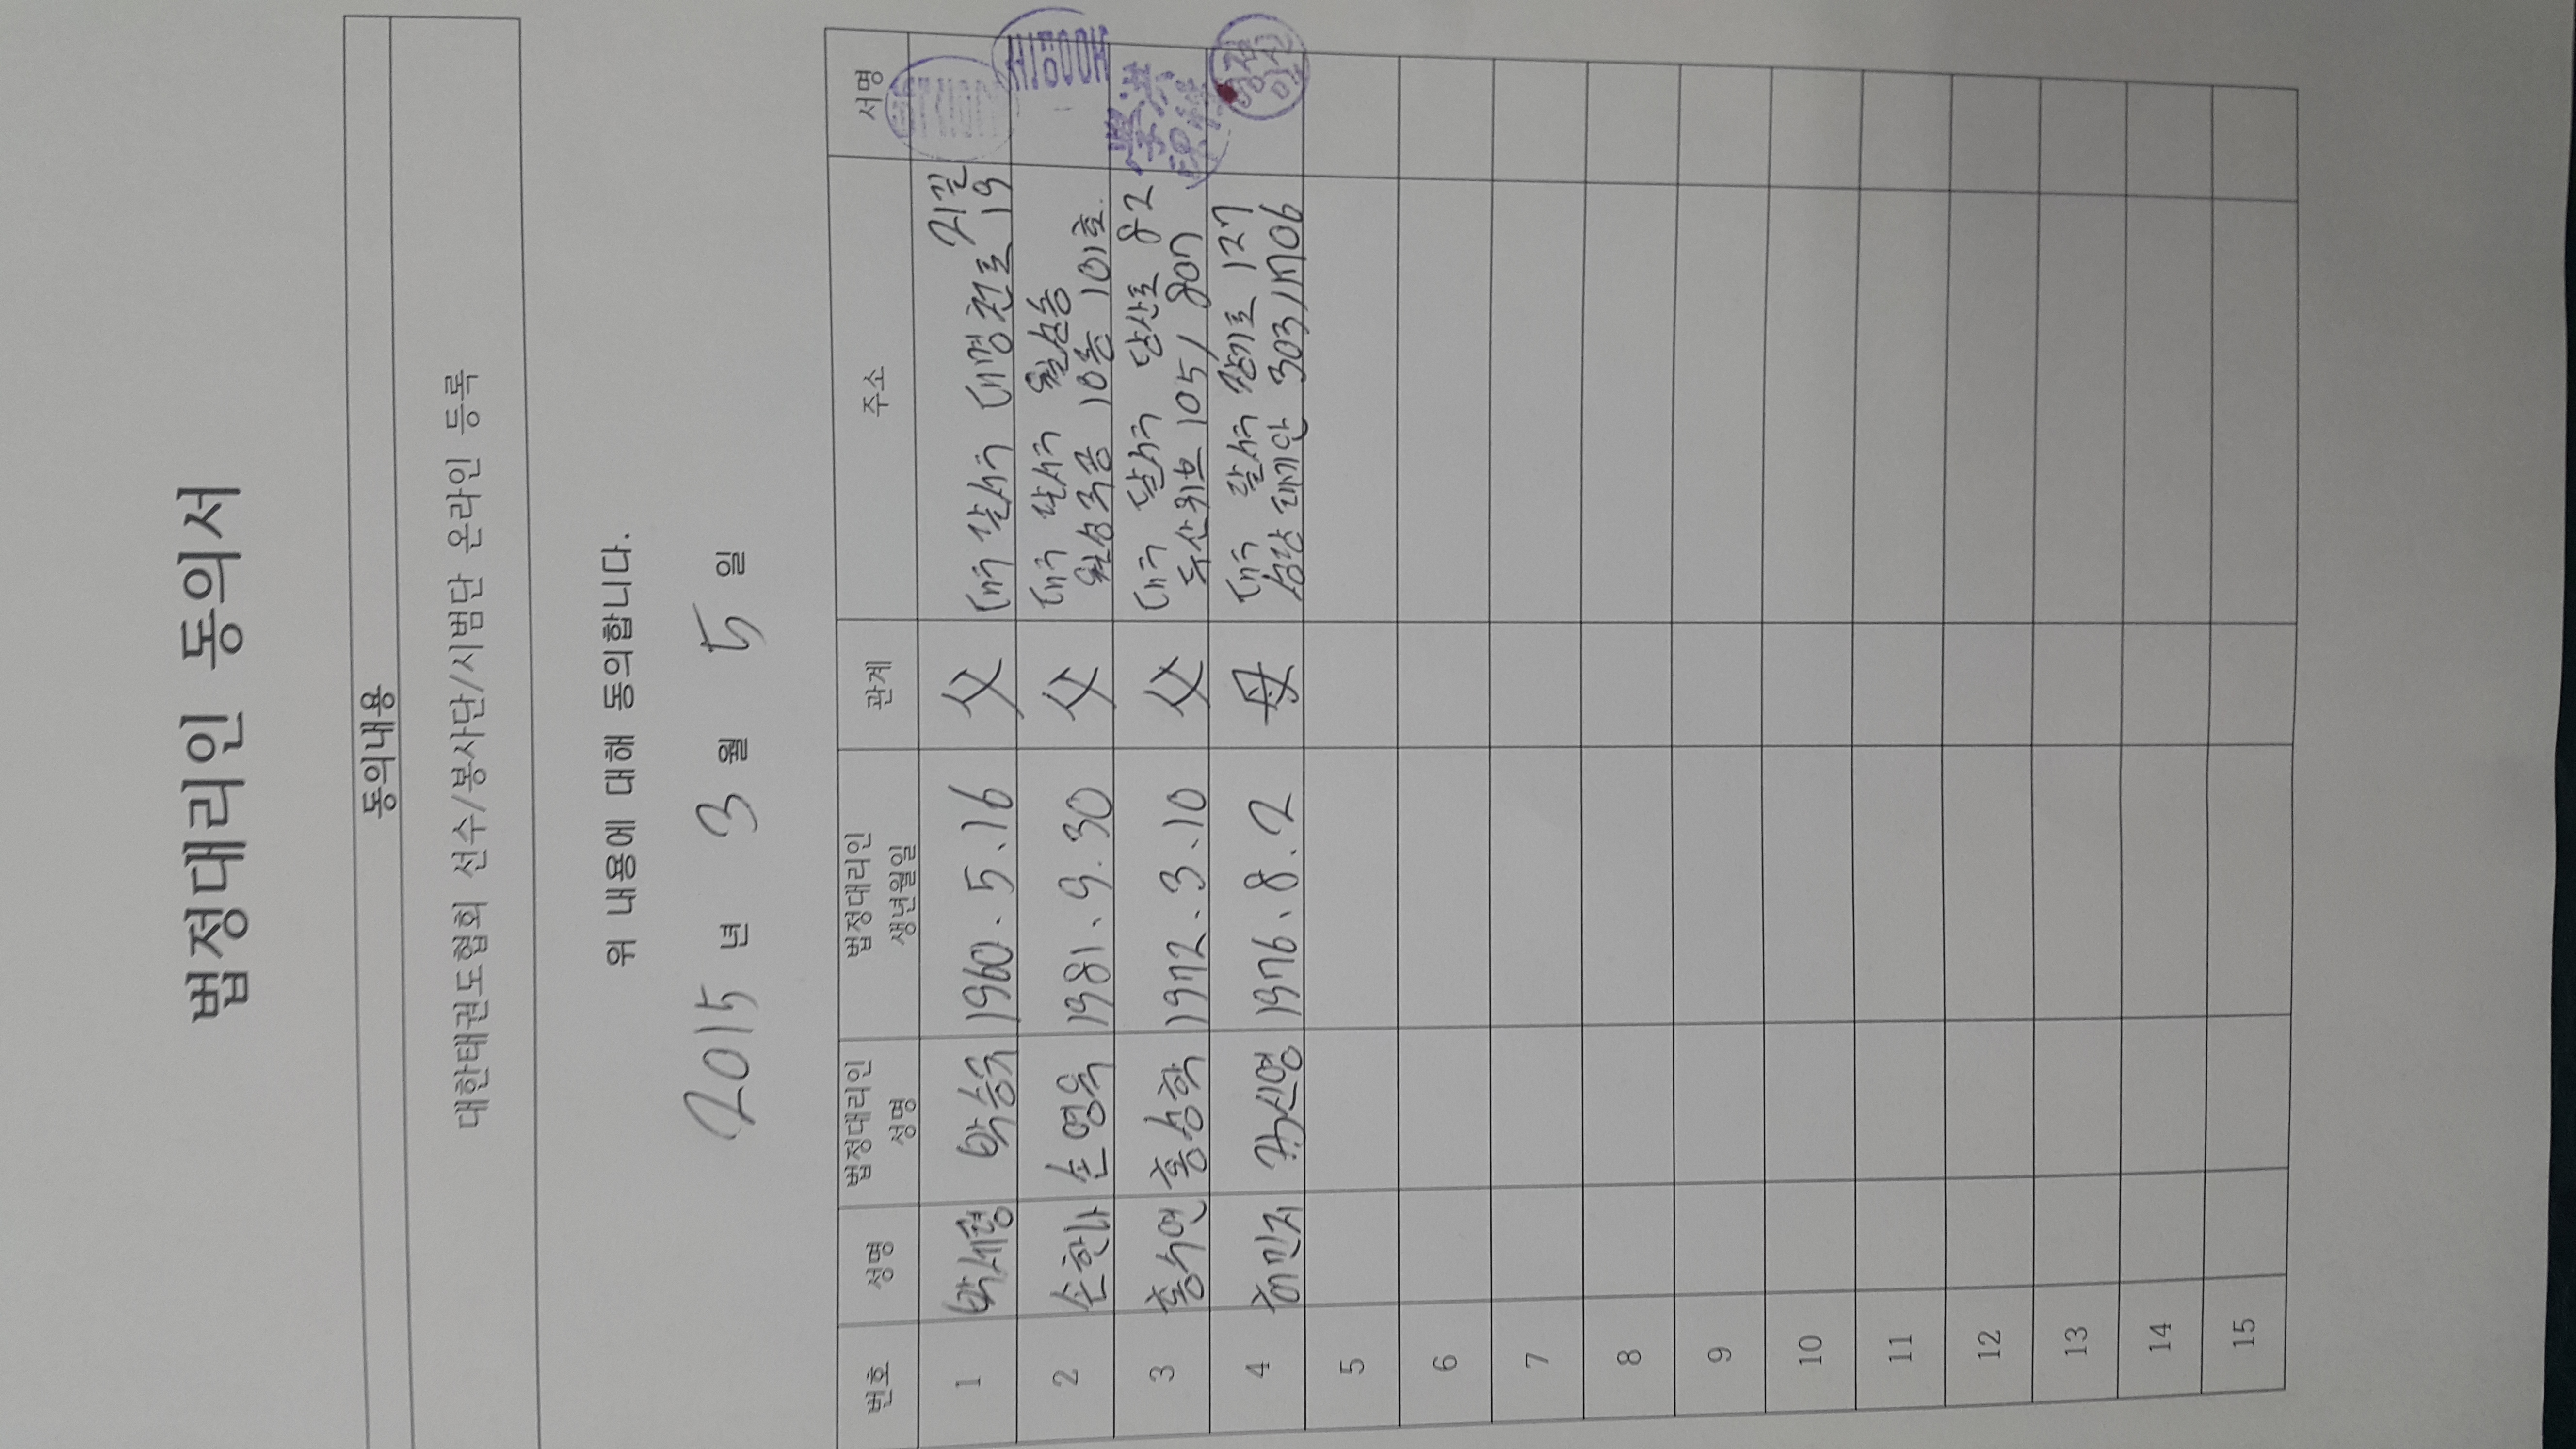 법정대리인 동의서
동의내용
대한태권도협회 선수/봉사단/시범단 온라인 등록
위 내용에 대해 동의합니다.
2015 년 3 월 5 일
번호 성명 법정대리인 성명 법정대리인 생년월일 관계 주소 서명
1 박세령 박승욱 1960. 5. 16 父 대구 달서구 대명천로 21길 19
2 손한나 손영욱 1981. 9. 30 父 대구 달서구 월성동
월성주공 10동 101호.
3 홍수연 홍상학 1972. 3. 10 父 대구 달서구 단산로 82
두산위브 105 / 807
4 민지 신영 1976. 8. 2 母 대구 달서구 장기로 127
성당 래미안 303/1706
5
6
7
8
9
10
11
12
13
14
15